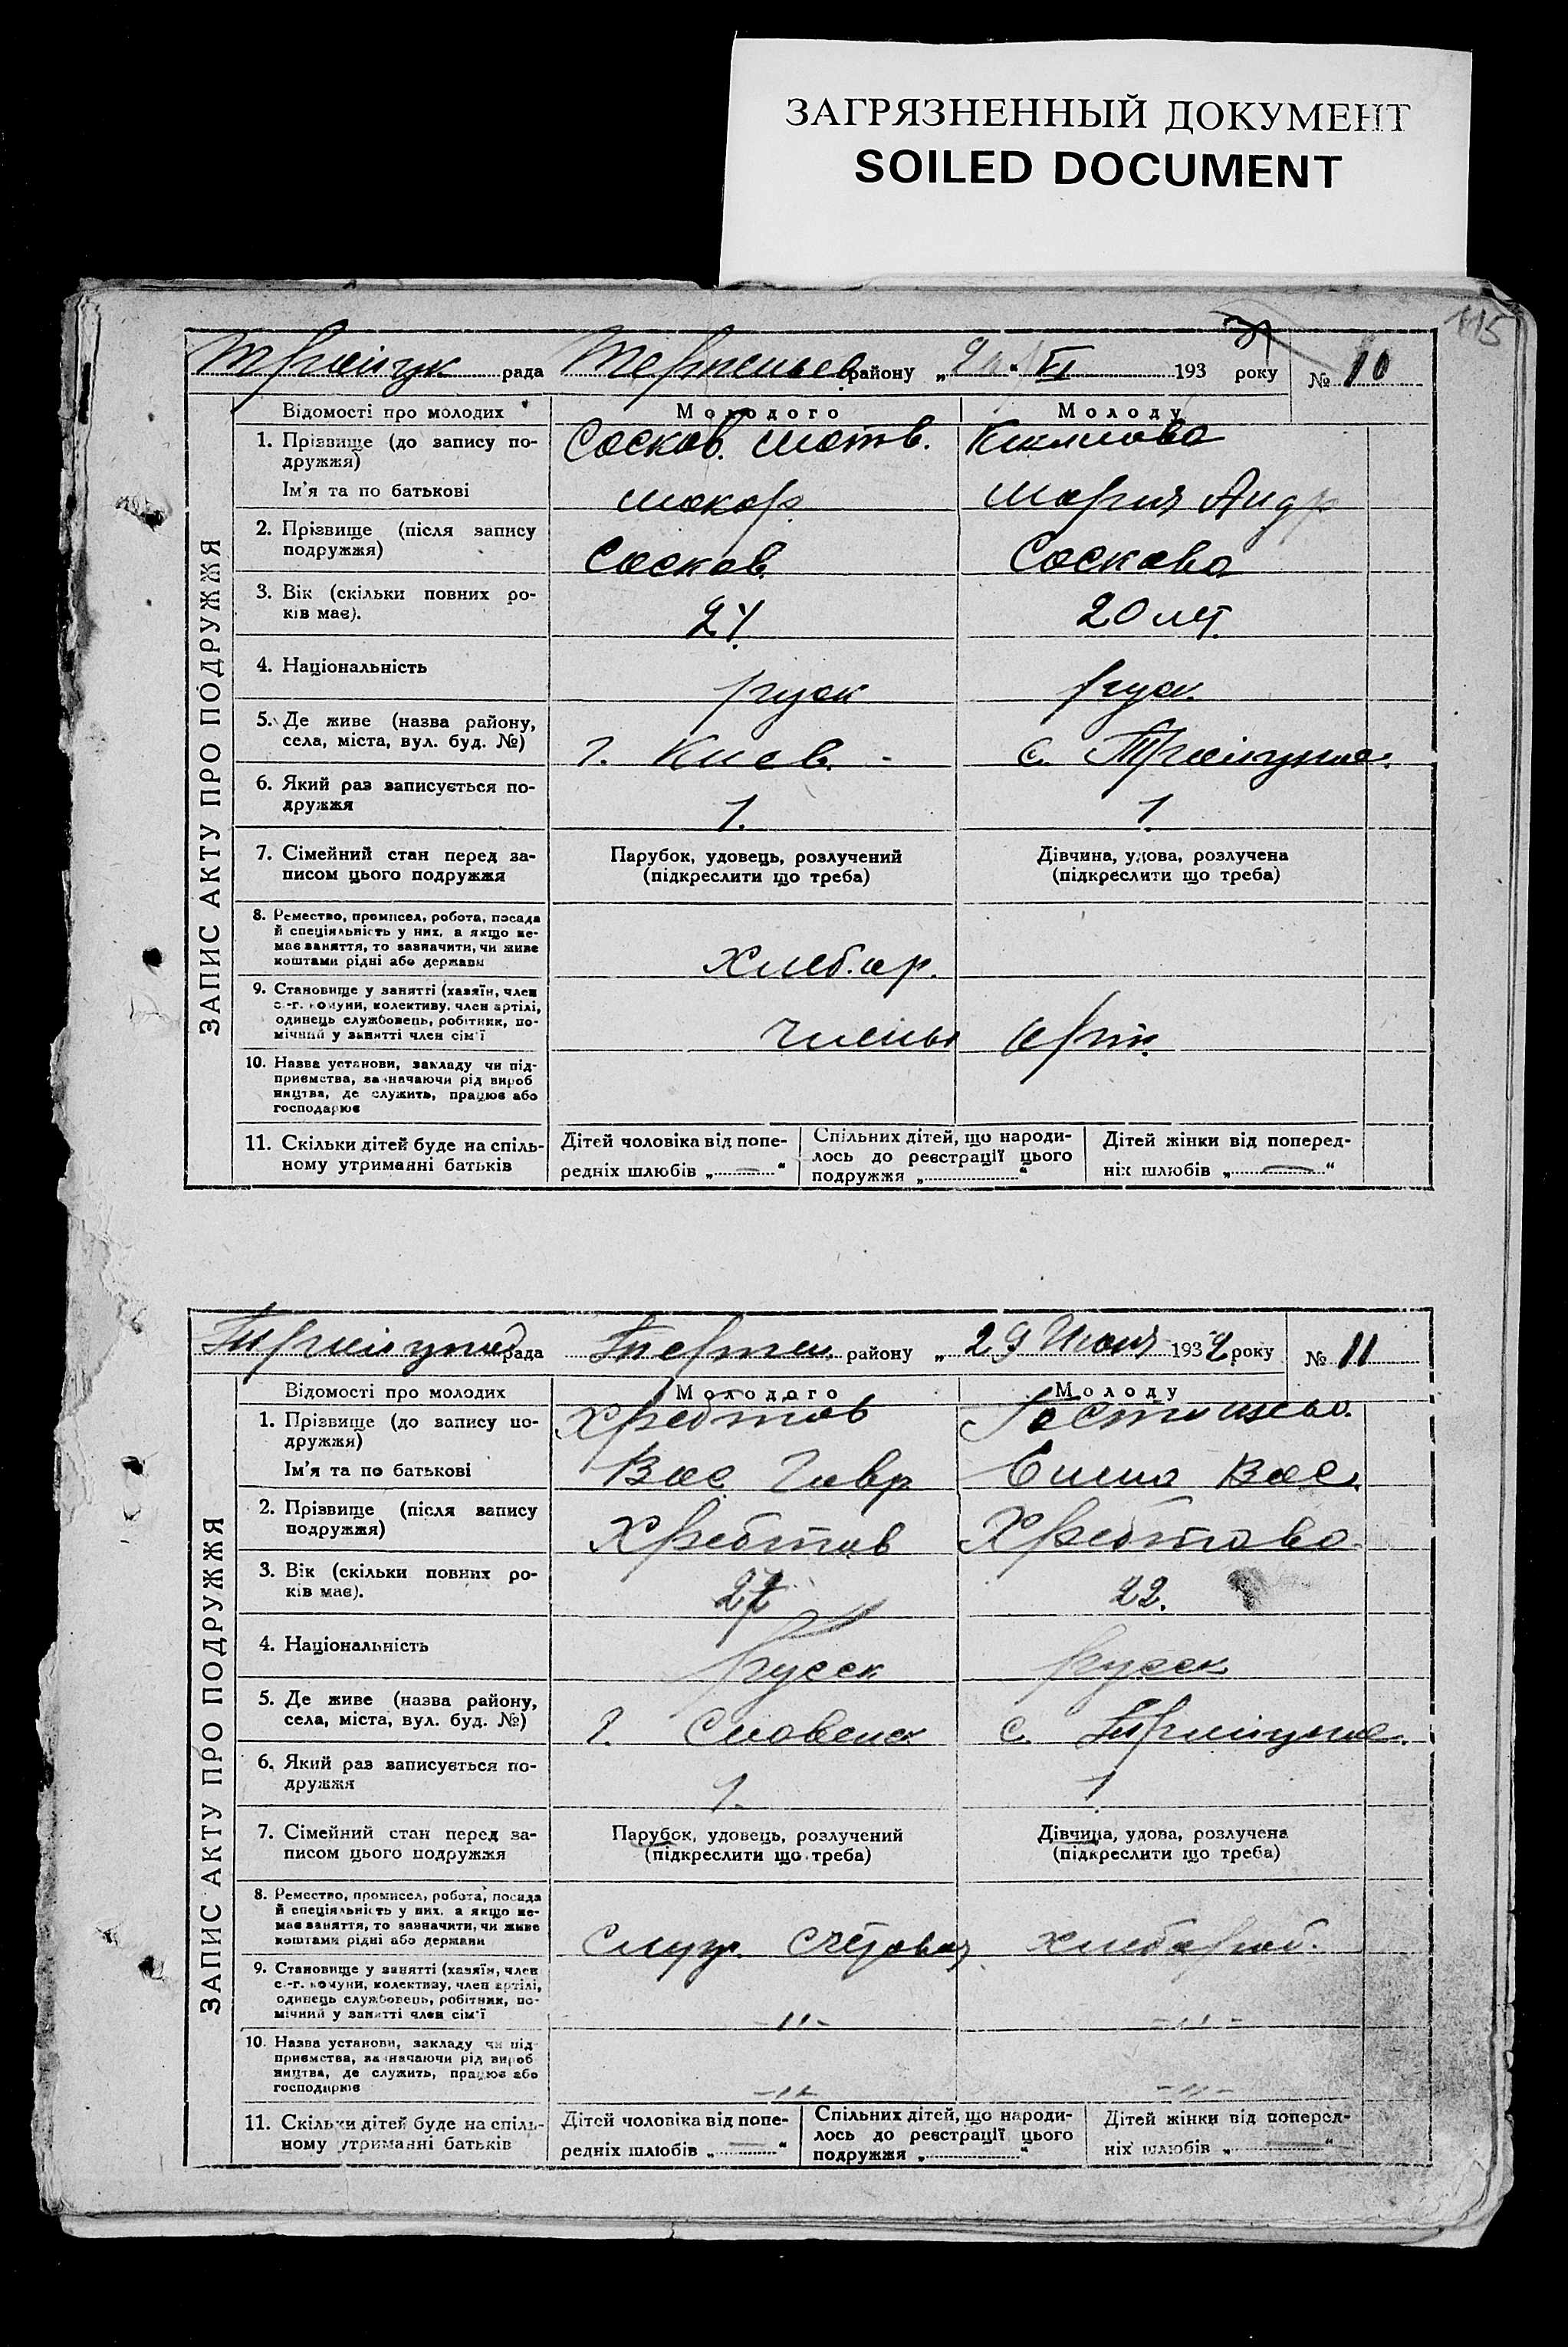 ЗАГРЯЗНЕННЫЙ ДОКУМЕНТ
SOILED DOCUMENT
115
рада району „ VI 193 року № 10
ЗАПИС АКТУ ПРО ПОДРУЖЖЯ
Відомості про молодих Молодого Молоду
1. Прізвище (до запису по-
дружжя)
Сосков. Матв.
Ім'я та по батькові
Макар Мария Андр
2. Прізвище (після запису
подружжя)
Сосков Соскова
3. Вік (скільки повних ро-
ків має).
20 лет.
4. Національність
руск руск.
5. Де живе (назва району,
села, міста, вул. буд. №)
г. Киев. с.
6. Який раз записується по-
дружжя
1. 1.
7. Сімейний стан перед за-
писом цього подружжя
Парубок, удовець, розлучений
(підкреслити що треба)
Дівчина, удова, розлучена
(підкреслити що треба)
8. Ремество, промисел, робота, посада
й спеціяльність у них, а якщо не-
має заняття, то зазначити, чи живе
коштами рідні або держави
хлебор.
9. Становище у занятті (хазяїн, член
с.-г. комуни, колективу, член артілі,
одинець службовець, робітник, по-
мічний у занятті член сім'ї
члены арт.
10. Назва установи, закладу чи під-
приємства, зазначаючи рід вироб
ництва, де служить, працює або
господарює
11. Скільки дітей буде на спіль-
ному утриманні батьків
Дітей чоловіка від попе-
редніх шлюбів „ — “
Спільних дітей, що народи-
лось до реєстрації цього
подружжя „ “
Дітей жінки від поперед-
ніх шлюбів „ — “
рада району „ 29 Июня 1934 року № 11
ЗАПИС АКТУ ПРО ПОДРУЖЖЯ
Відомості про молодих Молодого Молоду
1. Прізвище (до запису по-
дружжя)
Хребтов
Ім'я та по батькові
Вас Гавр Вас.
2. Прізвище (після запису
подружжя)
Хребтов Хребтова
3. Вік (скільки повних ро-
ків має).
27 22.
4. Національність
русск русск
5. Де живе (назва району,
села, міста, вул. буд. №)
г. с.
6. Який раз записується по-
дружжя
1. 1
7. Сімейний стан перед за-
писом цього подружжя
Парубок, удовець, розлучений
(підкреслити що треба)
Дівчина, удова, розлучена
(підкреслити що треба)
8. Ремество, промисел, робота, посада
й спеціяльність у них, а якщо не-
має заняття, то зазначити, чи живе
коштами рідні або держави
служ. счетовод хлебороб.
9. Становище у занятті (хазяїн, член
с.-г. комуни, колективу, член артілі,
одинець службовець, робітник, по-
мічний у занятті член сім'ї
-"- -"-
10. Назва установи, закладу чи під-
приємства, зазначаючи рід вироб
ництва, де служить, працює або
господарює
-"- -"-
11. Скільки дітей буде на спіль-
ному утриманні батьків
Дітей чоловіка від попе-
редніх шлюбів „ — “
Спільних дітей, що народи-
лось до реєстрації цього
подружжя „ “
Дітей жінки від поперед-
ніх шлюбів „ — “